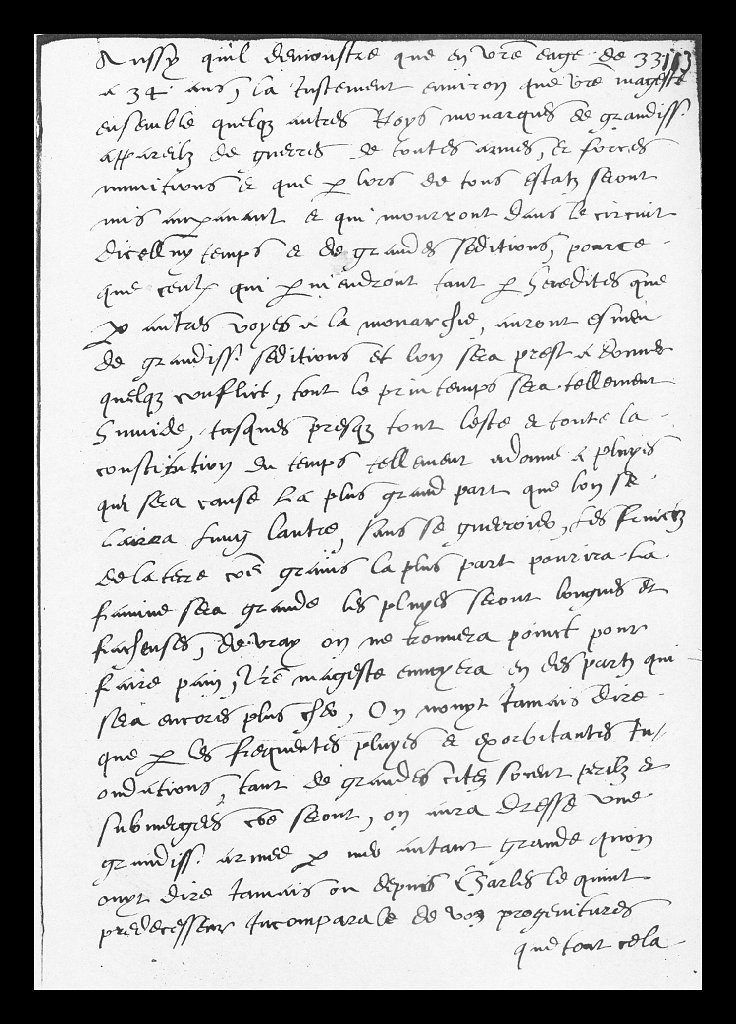 Aussy quil demonstre que en vre eage de 33
a 34 ans, la Justement environ que vre mageste
ensemble quelqz autres Roys monarques de grandiss.
appareilz de guerres de toutes armes, et forces
munitions et que p lors de tous estatz seront
mis en avant et qui mourront dans le circuit
dicelluy temps et de grandes seditions, pource
que ceulx qui pviendront tant p heredites que
p autres voyes a la monarchie, auront esmeu
de grandiss. seditions et lon sera prest a donner
quelqz conflict, tout le printemps sera tellement
humide, Jusques presqz tout leste et toute la
constitution du temps tellement adonne a pluyes
qui sera cause La plus grand part que lon se
Lairra Lung lautre, sans se guerroier, Les fruictz
de la tere coe grains la plus part pourira La
famine sera grande les pluyes seront longues et
facheuses, de vray on ne trouvera poinct pour
faire pain, Vre mageste envoyera en des partz qui
sera encores plus cher, On nouyt Jamais dire
que p les frequentes pluyes et exorbitantes Inondations,
tant de grandes citez soient perilz et
submergees coe seront, on aura dresse une
grandiss. armee p mer autant grande quon
ouyt dire Jamais ou depuis Charles le quint
predecesseur Incomparable de voz progenitures
que tout cela